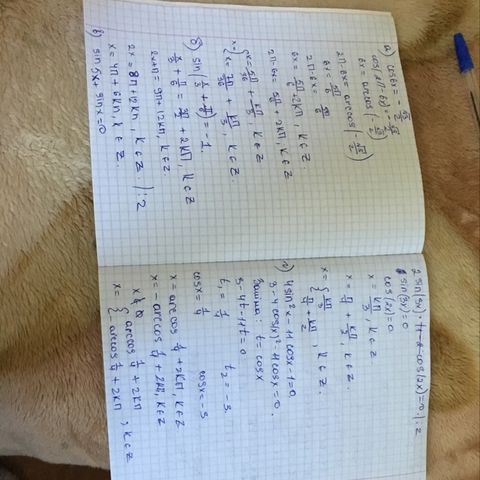 а) cos6x = -√3/2
cos(2π-6x) = -√3/2
6x = arccos(-√3/2)
2π-6x = arccos(-√3/2)
6x = 5π/6
2π-6x = 5π/6
6x = 5π/6 + 2kπ, k∈Z.
2π-6x = 5π/6 + 2kπ, k∈Z
x = 5π/36 + kπ/3, k∈Z
x = { 7π/36 + kπ/3, k∈Z.
б) sin(x/3 + π/6) = -1.
x/3 + π/6 = 3π/2 + 2kπ, k∈Z
2x+π = 9π+12kπ, k∈Z
2x = 8π+12kπ, k∈Z. |:2
x = 4π+6kπ, k∈Z.
в) sin5x + sinx = 0
2 sin(3x) · cos(2x) = 0 |:2
sin(3x) = 0
cos(2x) = 0
x = kπ/3, k∈Z
x = π/4 + kπ/2, k∈Z.
x = { kπ/3
π/4 + kπ/2, k∈Z.
г) 4sin²x - 11cosx - 1 = 0
3 - 4cos(x)² - 11cosx = 0.
Замена: t = cosx
3 - 4t² - 11t = 0
t₁ = 1/4 t₂ = -3.
cosx = 1/4 cosx = -3
x = arccos 1/4 + 2kπ, k∈Z
x = -arccos 1/4 + 2kπ, k∈Z
x = { -arccos 1/4 + 2kπ
arccos 1/4 + 2kπ , k∈Z